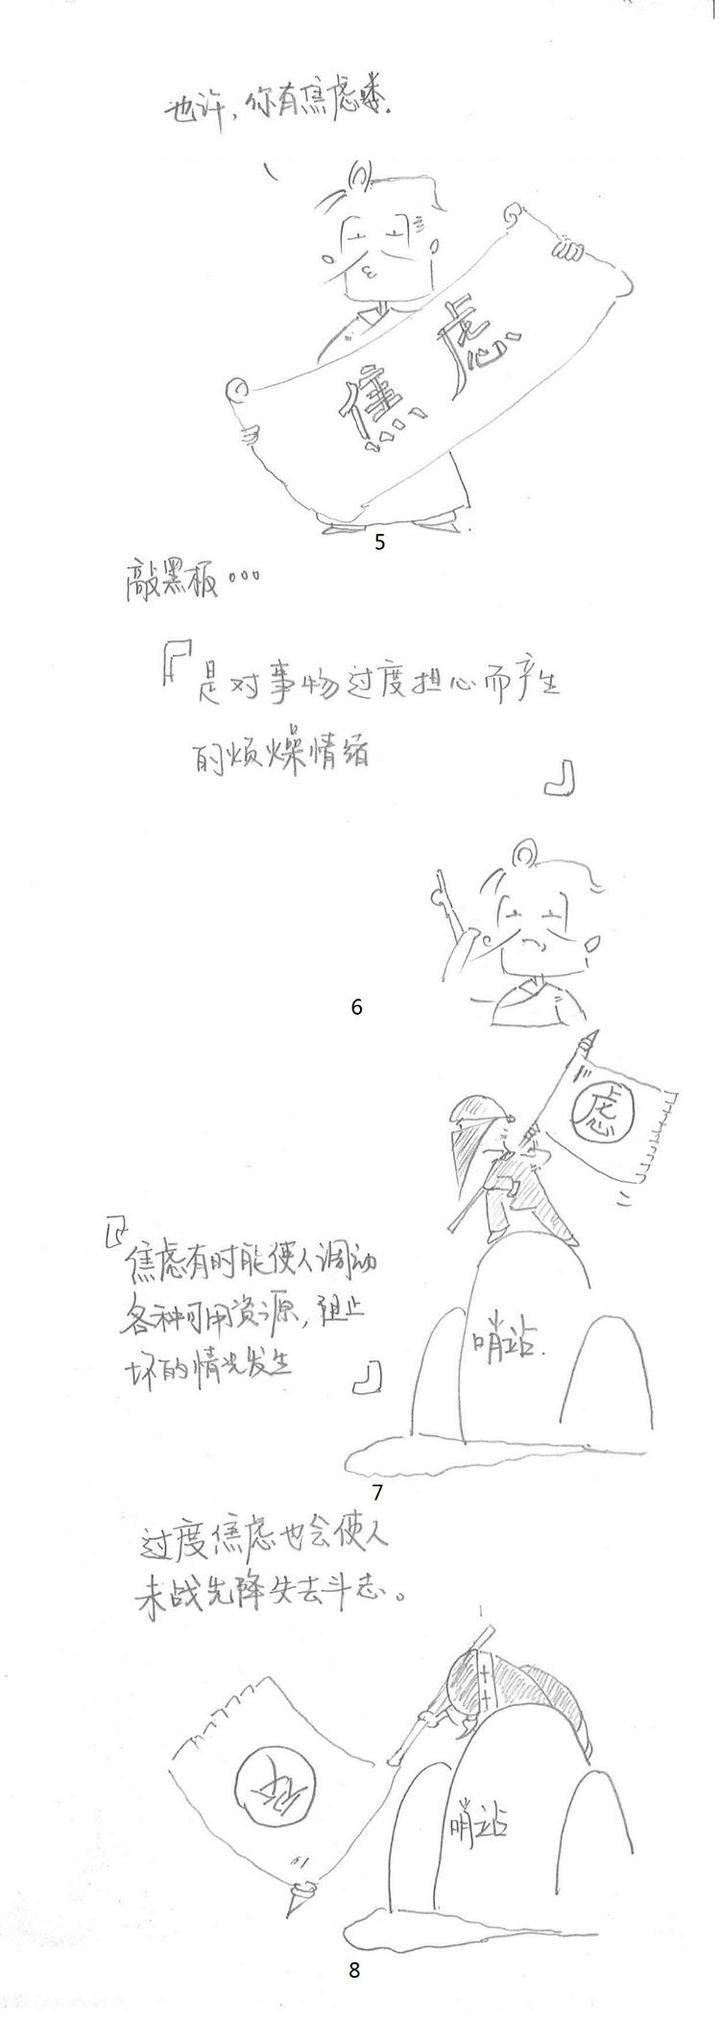 也许，你有焦虑喽.
焦虑
5
敲黑板...
『是对事物过度担心而产生
的烦燥情绪
』
6
虑
『焦虑有时能使人调动
各种可用资源，阻止
坏的情况发生』
哨站.
7
过度焦虑也会使人
未战先降失去斗志。
哨站
8